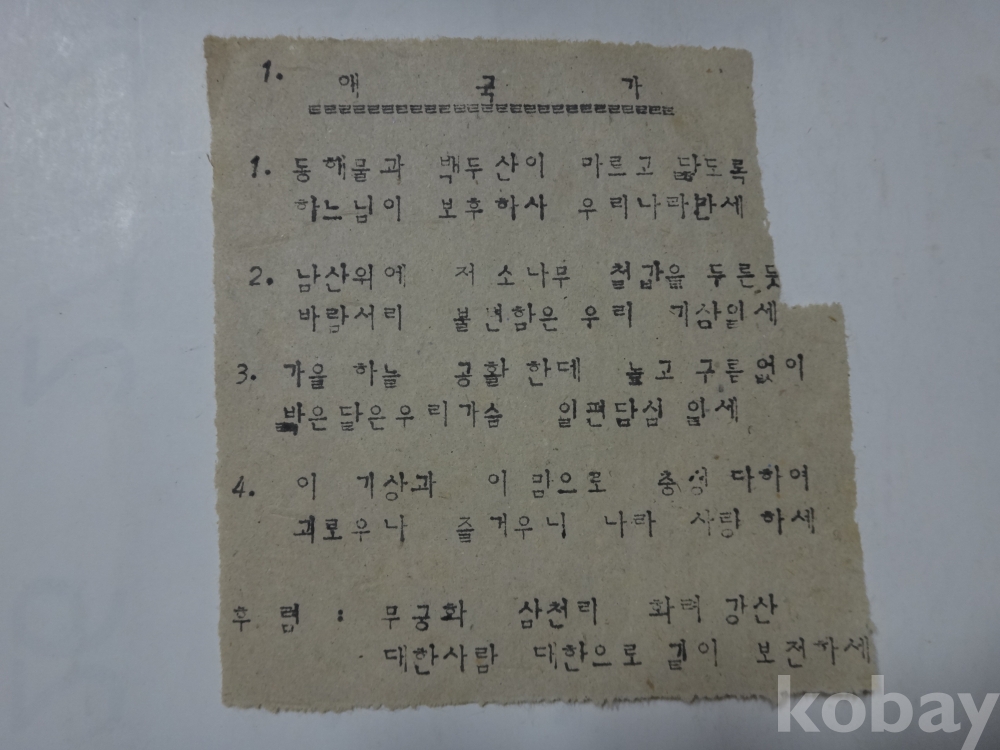 1. 애 국 가
1. 동해물과 백두산이 마르고 닳도록
하느님이 보후하사 우리나라만세
2. 남산위에 저 소나무 철갑을 두른듯
바람서리 불변함은 우리 기상일세
3. 가을 하늘 공활 한데 높고 구름없이
밝은달은우리가슴 일편담심 일세
4. 이 기상과 이 맘으로 충성 다하여
괴로우나 즐거우나 나라 사랑 하세
후렴 : 무궁화 삼천리 화려 강산
대한사람 대한으로 길이 보전하세
kobay